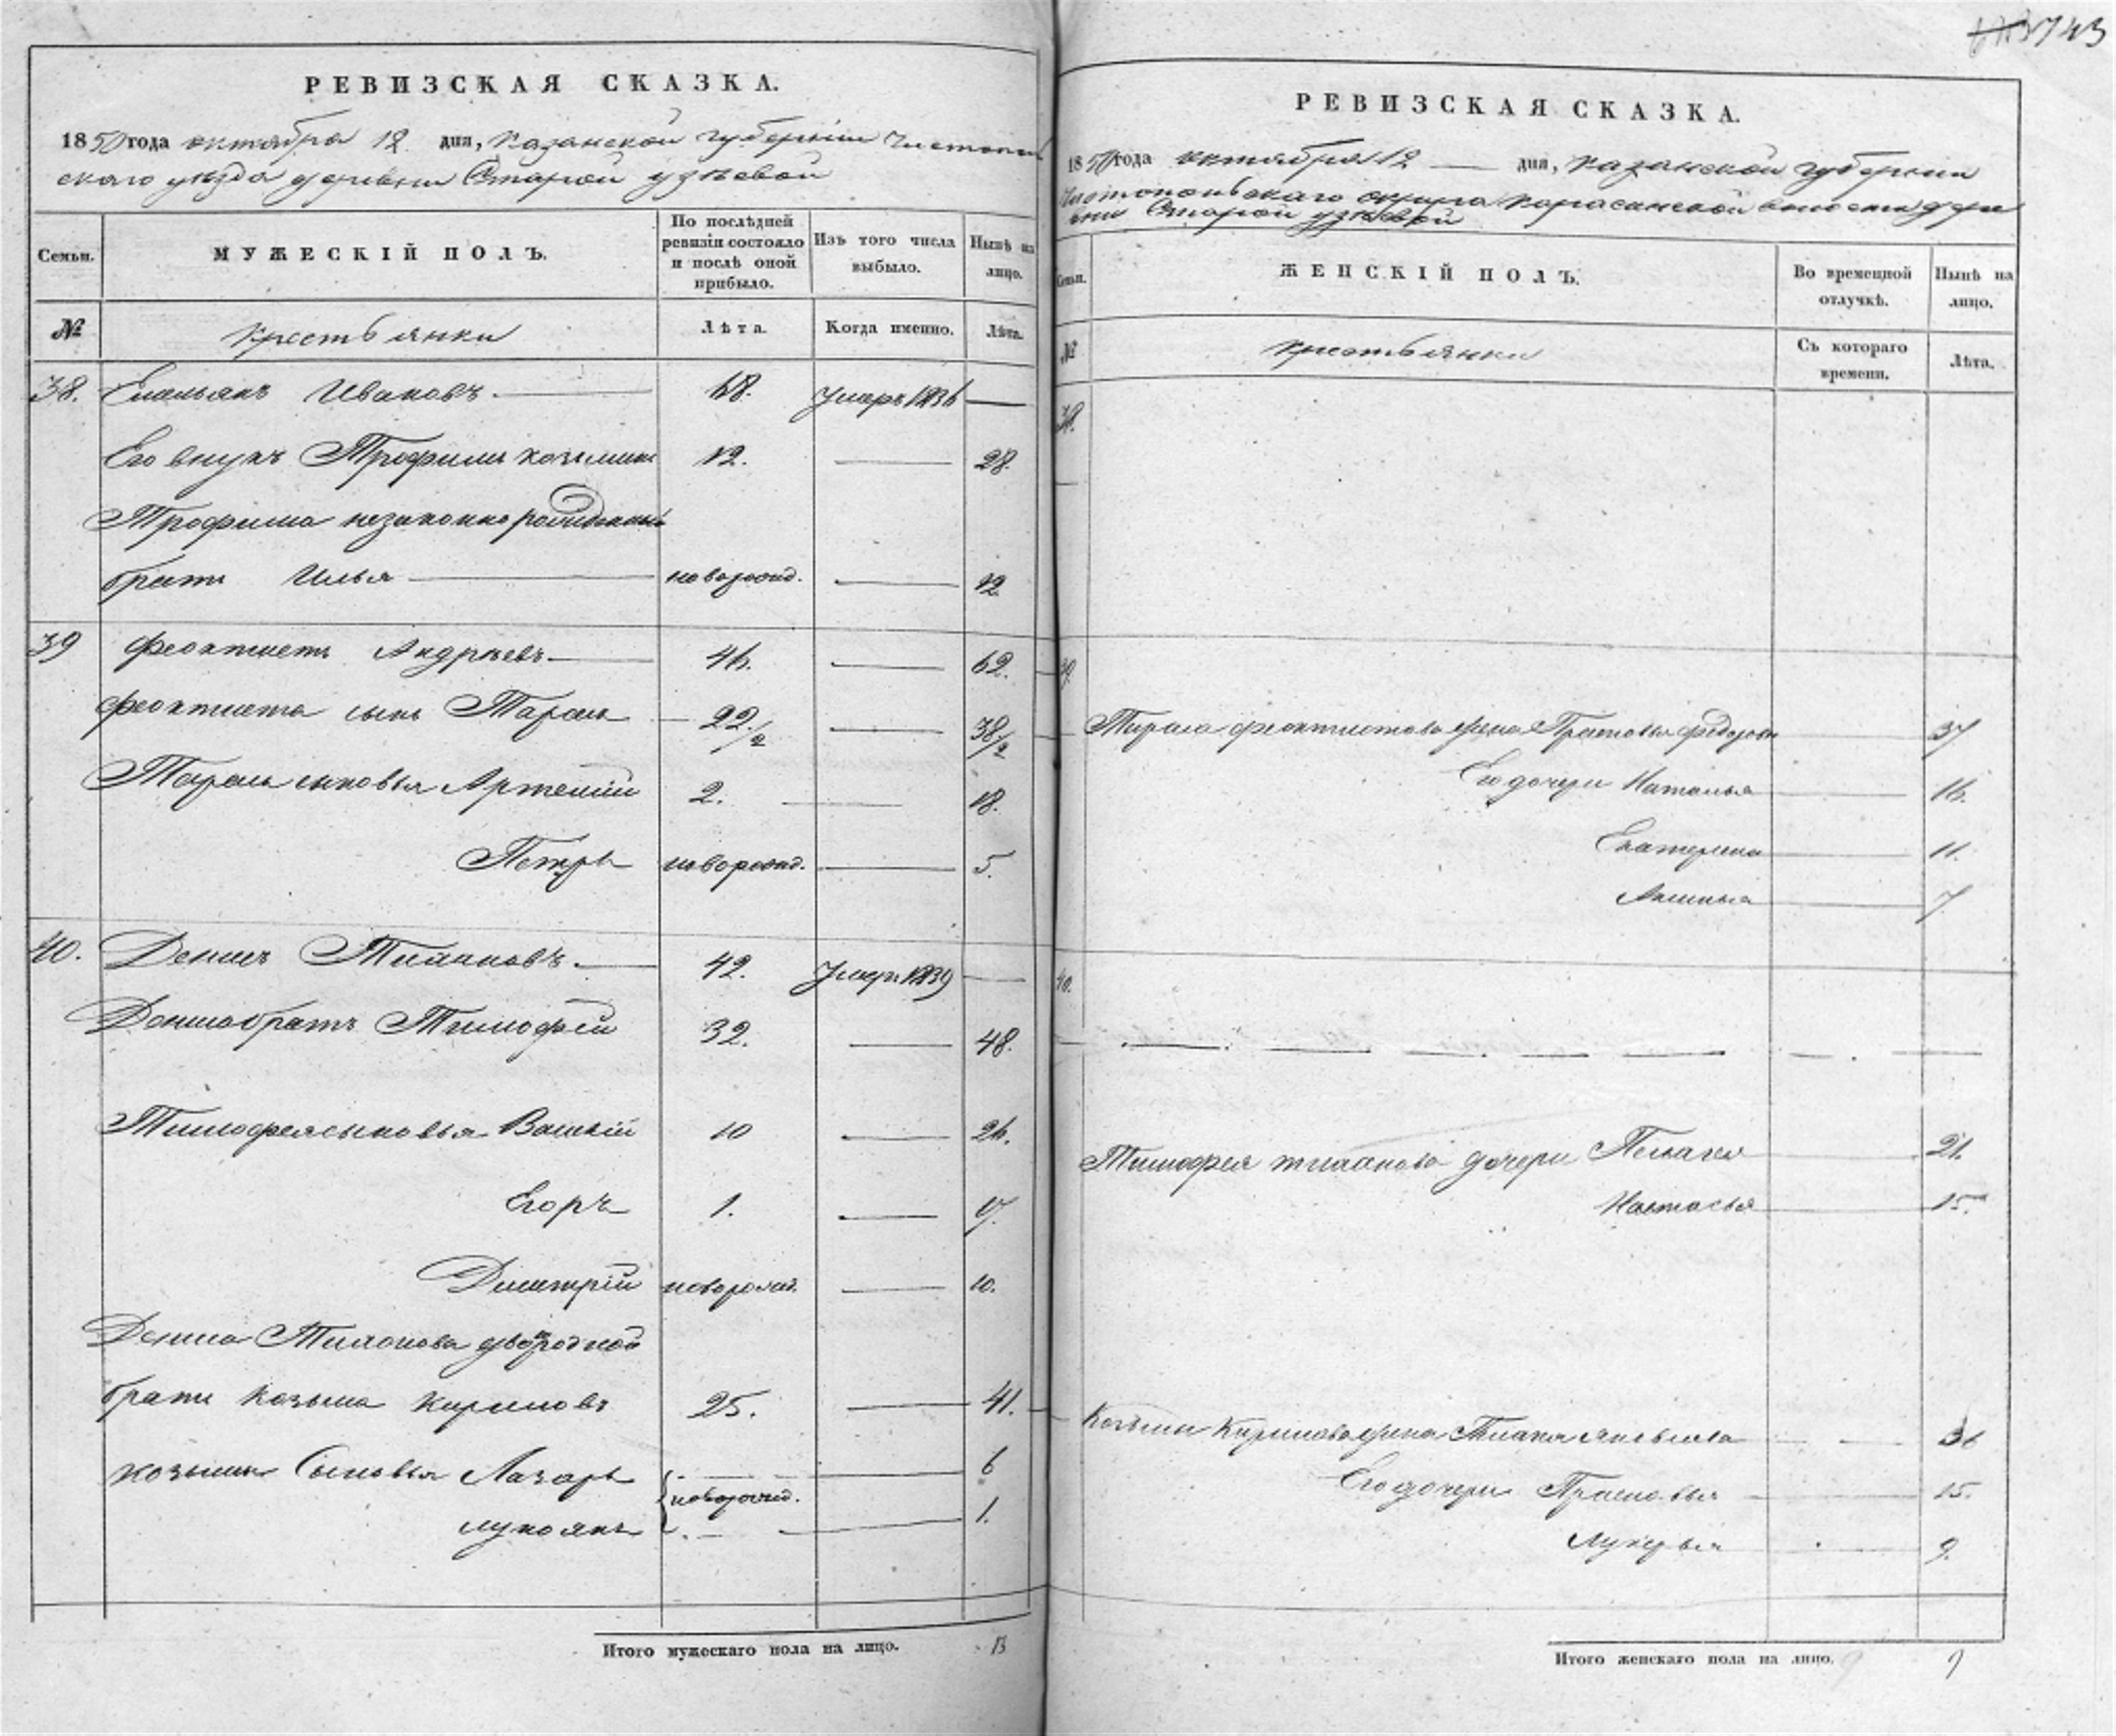 743
РЕВИЗСКАЯ СКАЗКА.
1850 года октября 12 дня, Казанской губернiи Чистополь
скаго уѣзда деревни Старой Узѣевой
Семьи. МУЖЕСКІЙ ПОЛЪ. По послѣдней ревизіи состояло и послѣ оной прибыло. Изъ того числа выбыло. Нынѣ на лицо.
№ крестьянки Лѣта. Когда именно. Лѣта.
38. Емельянъ Ивановъ. 68. Умеръ 1836
Его внукъ Трофимъ Козьминъ 12. 28.
Трофима незаконнорожденный
братъ Илья новорожд. 12
39 Феоктистъ Андреевъ 46. 62.
Феоктиста сынъ Тарасъ 22 1/2 38 1/2
Тараса сыновья Артемій 2. 18.
Петръ новорожд. 5.
40. Денисъ Тимановъ. 42. Умеръ 1839
Дениса братъ Тимофей 32. 48.
Тимофея сыновья Василій 10 26.
Егоръ 1. 17.
Димитрій новорожд. 10.
Дениса Тиманова двоюродной
братъ Козьма Кириловъ 25. 41.
Козьмы Сыновья Лазарь 6
новорожд.
Лукоянъ 1.
Итого мужескаго пола на лицо. 13
РЕВИЗСКАЯ СКАЗКА.
1850 года октября 12 дня, Казанской губернiи
Чистопольскаго округа волости дере
вни Старой Узѣевой
Семьи. ЖЕНСКІЙ ПОЛЪ. Во временной отлучкѣ. Нынѣ на лицо.
№ крестьянки Съ котораго времени. Лѣта.
38.
39.
Тараса Феоктистова жена Прасковья Федорова 37
Его дочери Наталья 16.
Екатерина 11.
7
40.
Тимофея Тиманова дочери Пелагея 21.
Настасья 15.
Козьмы Кирилова жена 36
Его дочери Прасковья 15.
Лукерья 9.
Итого женскаго пола на лицо. 9